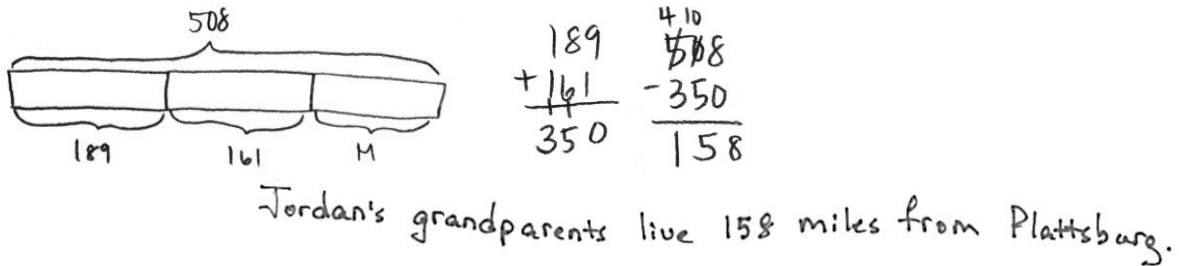 508
189 161 M
189
+ 161
350
4 10
508
- 350
158
Jordan's grandparents live 158 miles from Plattsburg.